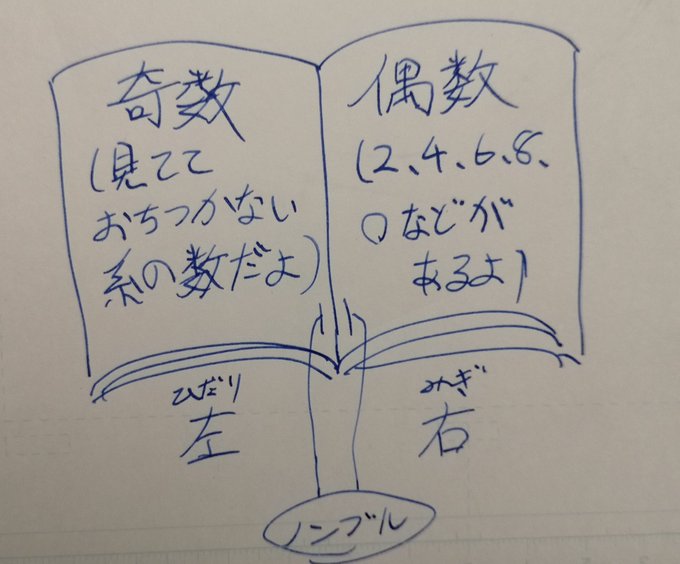 奇数
(見てて
おちつかない
系の数だよ)
偶数
(2、4、6、8、
0などが
あるよ)
ひだり
左
みぎ
右
ノンブル